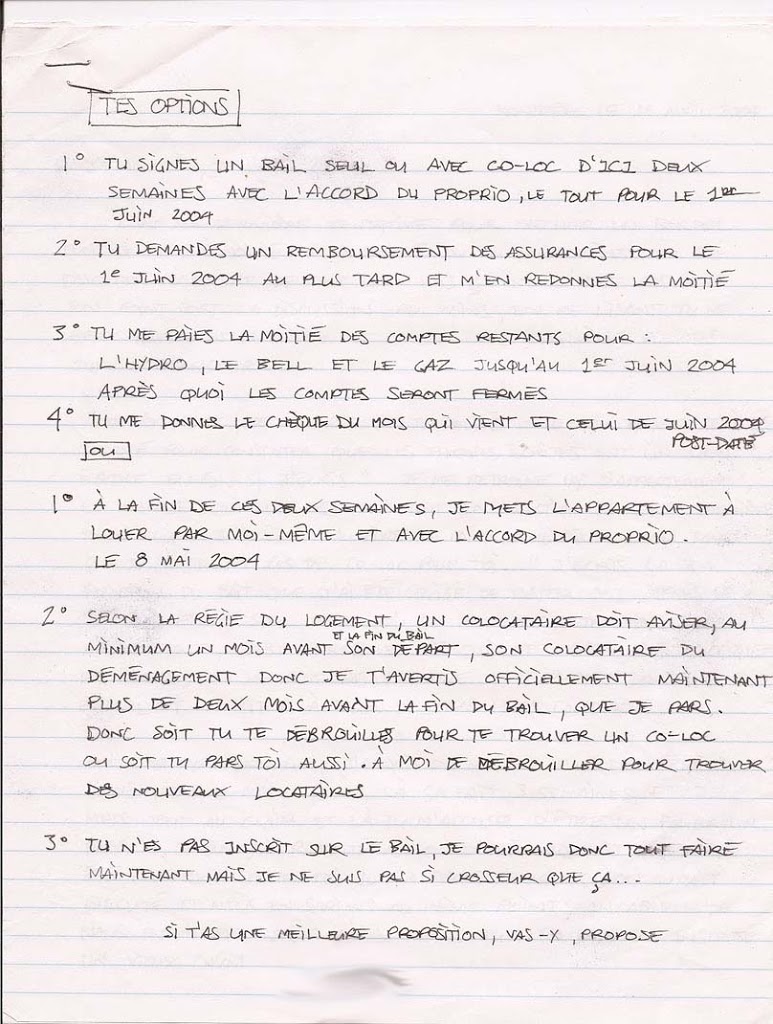 TES OPTIONS
1° TU SIGNES UN BAIL SEUL OU AVEC CO-LOC D'ICI DEUX
SEMAINES AVEC L'ACCORD DU PROPRIO, LE TOUT POUR LE 1er
JUIN 2004
2° TU DEMANDES UN REMBOURSEMENT DES ASSURANCES POUR LE
1e JUIN 2004 AU PLUS TARD ET M'EN REDONNES LA MOITIÉ
3° TU ME PAIES LA MOITIÉ DES COMPTES RESTANTS POUR :
L'HYDRO, LE BELL ET LE GAZ JUSQU'AU 1er JUIN 2004
APRÈS QUOI LES COMPTES SERONT FERMÉS
4° TU ME DONNES LE CHÈQUE DU MOIS QUI VIENT ET CELUI DE JUIN 2004
POST-DATÉ
OU
1° À LA FIN DE CES DEUX SEMAINES, JE METS L'APPARTEMENT À
LOUER PAR MOI-MÊME ET AVEC L'ACCORD DU PROPRIO.
LE 8 MAI 2004
2° SELON LA RÉGIE DU LOGEMENT, UN COLOCATAIRE DOIT AVISER, AU
ET LA FIN DU BAIL
MINIMUM UN MOIS AVANT SON DÉPART, SON COLOCATAIRE DU
DÉMÉNAGEMENT DONC JE T'AVERTIS OFFICIELLEMENT MAINTENANT
PLUS DE DEUX MOIS AVANT LA FIN DU BAIL, QUE JE PARS.
DONC SOIT TU TE DÉBROUILLES POUR TE TROUVER UN CO-LOC
OU SOIT TU PARS TOI AUSSI. À MOI DE DÉBROUILLER POUR TROUVER
DES NOUVEAUX LOCATAIRES
3° TU N'ES PAS INSCRIT SUR LE BAIL, JE POURRAIS DONC TOUT FAIRE
MAINTENANT MAIS JE NE SUIS PAS SI CROSSEUR QUE ÇA...
SI T'AS UNE MEILLEURE PROPOSITION, VAS-Y, PROPOSE